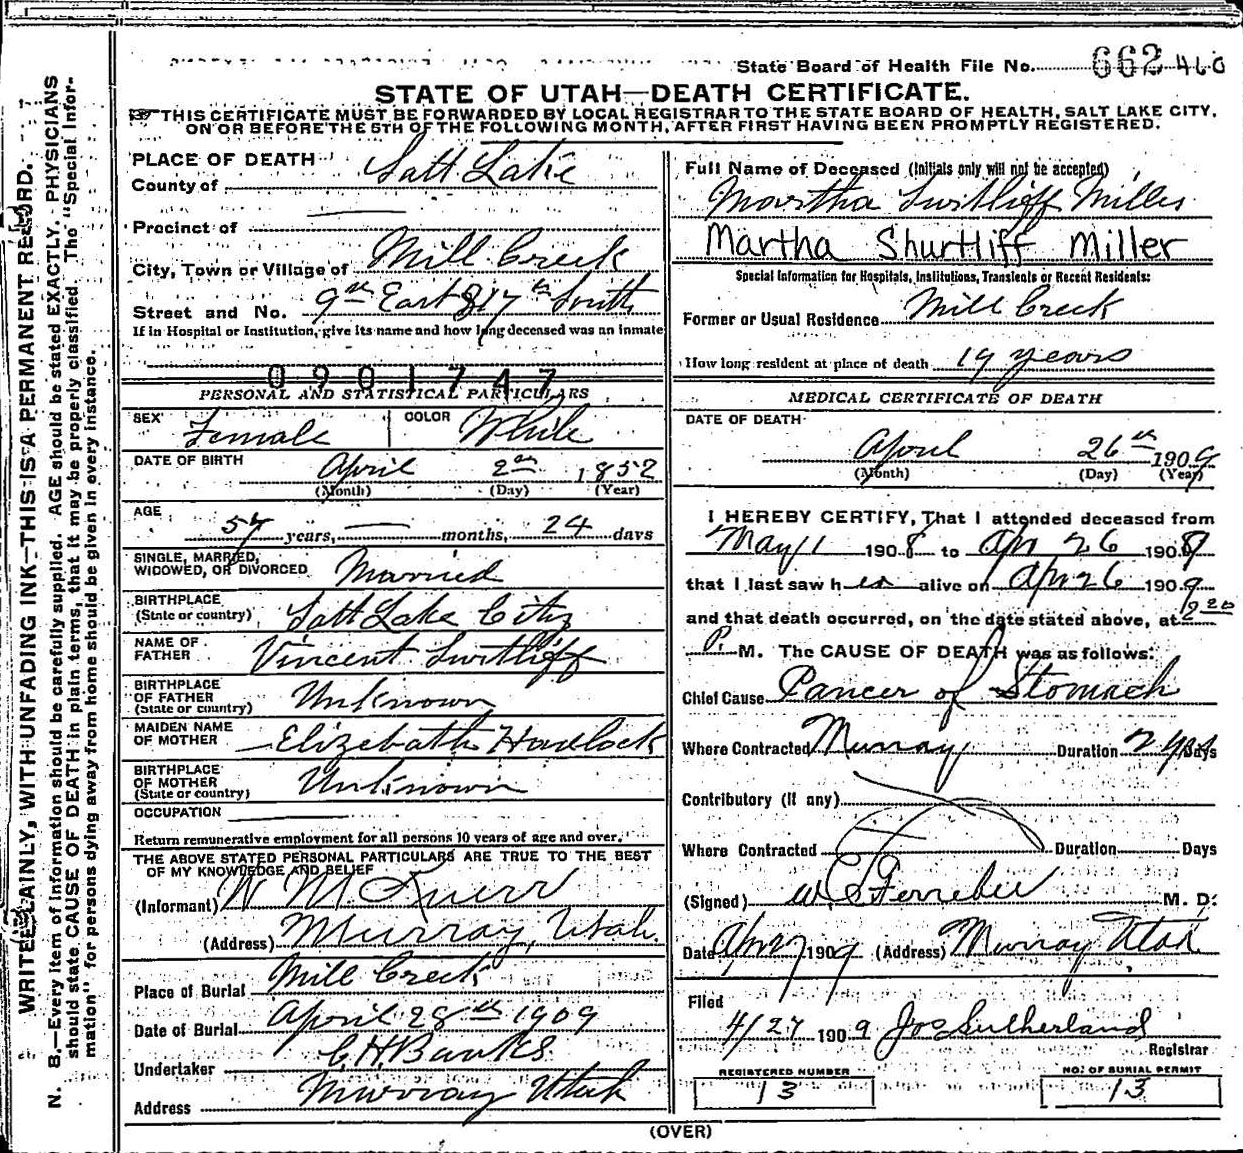 State Board of Health File No. 662 460
STATE OF UTAH—DEATH CERTIFICATE.
THIS CERTIFICATE MUST BE FORWARDED BY LOCAL REGISTRAR TO THE STATE BOARD OF HEALTH, SALT LAKE CITY,
ON OR BEFORE THE 5TH OF THE FOLLOWING MONTH, AFTER FIRST HAVING BEEN PROMPTLY REGISTERED.
WRITE PLAINLY, WITH UNFADING INK—THIS IS A PERMANENT RECORD.
N. B.—Every item of information should be carefully supplied. AGE should be stated EXACTLY. PHYSICIANS
should state CAUSE OF DEATH in plain terms, that it may be properly classified. The "Special Infor-
mation" for persons dying away from home should be given in every instance.
PLACE OF DEATH
County of Salt Lake
Precinct of
City, Town or Village of Mill Creek
Street and No. 9th East & 17th South
If in Hospital or Institution, give its name and how long deceased was an inmate
0901747
PERSONAL AND STATISTICAL PARTICULARS
SEX Female COLOR White
DATE OF BIRTH April 2nd 1852
(Month) (Day) (Year)
AGE 57 years, months, 24 days
SINGLE, MARRIED,
WIDOWED, OR DIVORCED Married
BIRTHPLACE
(State or country) Salt Lake City
NAME OF
FATHER Vincent Surtliff
BIRTHPLACE
OF FATHER
(State or country) Unknown
MAIDEN NAME
OF MOTHER Elizebath Havlock
BIRTHPLACE
OF MOTHER
(State or country) Unknown
OCCUPATION
Return remunerative employment for all persons 10 years of age and over.
THE ABOVE STATED PERSONAL PARTICULARS ARE TRUE TO THE BEST
OF MY KNOWLEDGE AND BELIEF
(Informant) W M Knerr
(Address) Murray, Utah.
Place of Burial Mill Creek
Date of Burial April 28th 1909
Undertaker C. H. Banks
Address Murray Utah
Full Name of Deceased (Initials only will not be accepted)
Martha Surtliff Miller
Martha Shurtliff Miller
Special Information for Hospitals, Institutions, Transients or Recent Residents:
Former or Usual Residence Mill Creek
How long resident at place of death 19 years
MEDICAL CERTIFICATE OF DEATH
DATE OF DEATH
April 26th 1909
(Month) (Day) (Year)
I HEREBY CERTIFY, That I attended deceased from
May 1 1908 to Apr 26 1909
that I last saw her alive on Apr 26 1909
and that death occurred, on the date stated above, at 12 20
P. M. The CAUSE OF DEATH was as follows:
Chief Cause Cancer of Stomach
Where Contracted Murray Duration 2 yrs Days
Contributory (If any)
Where Contracted Duration Days
(Signed) W S Ferrebee M. D.
Date Apr 27 1909 (Address) Murray Utah
Filed
4/27 1909 Jos Sutherland
Registrar
REGISTERED NUMBER
13
NO. OF BURIAL PERMIT
13
(OVER)